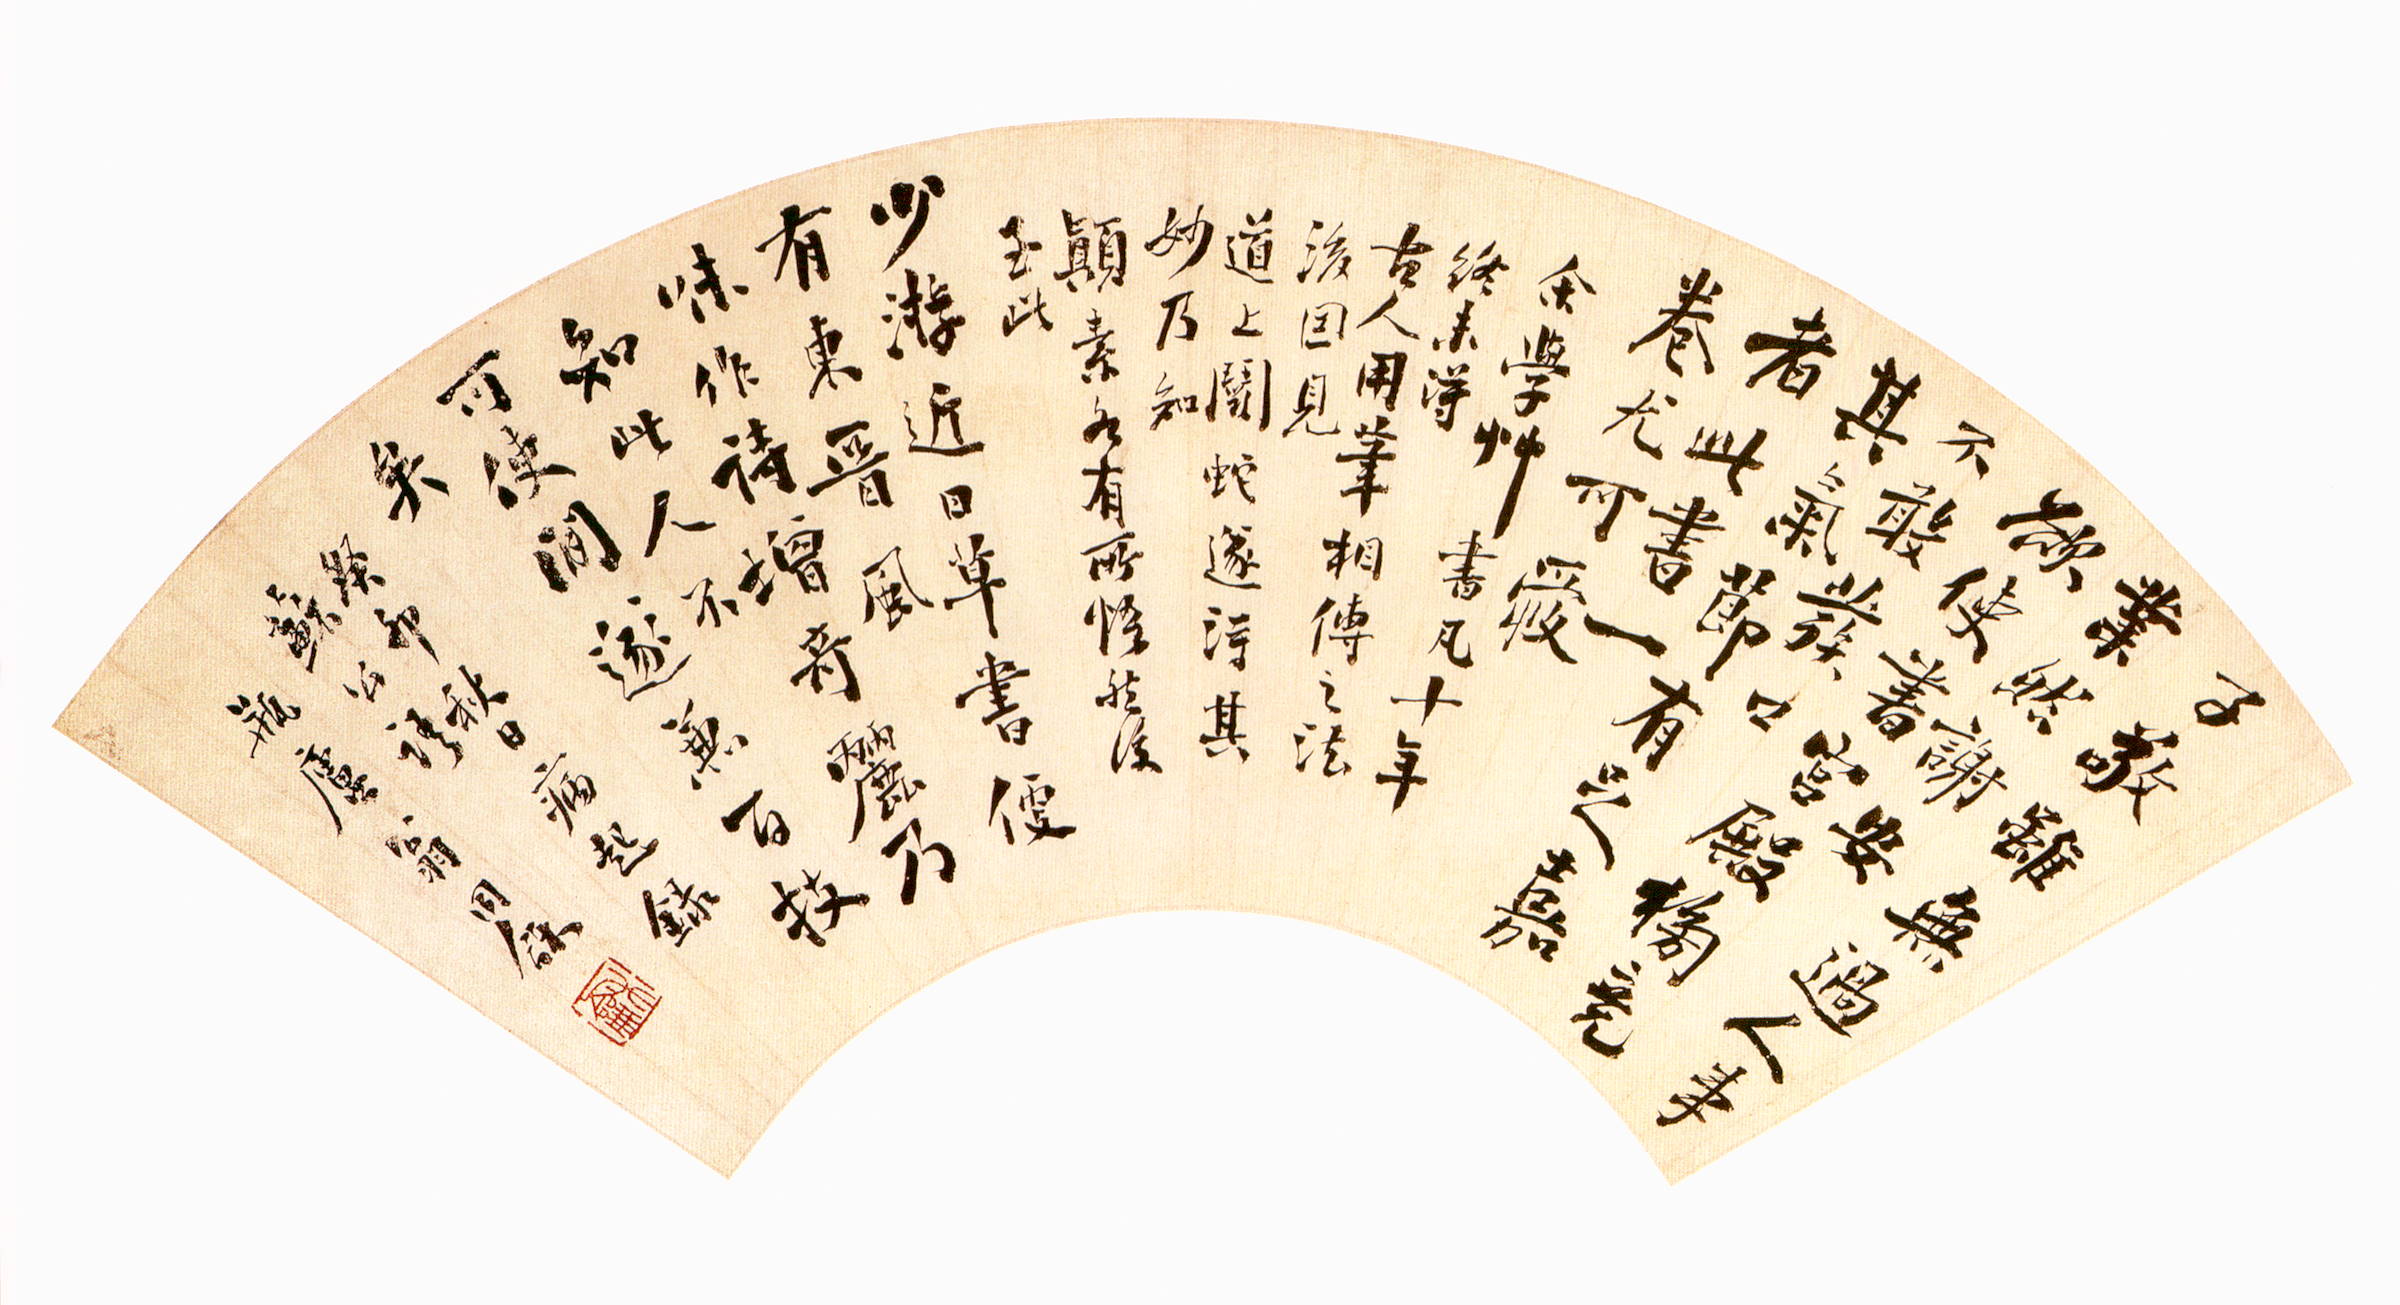 子敬雖無過人事
業然謝安
欲使書宮殿榜竟
不敢發口
其氣節有足嘉
者此書一
卷尤可愛
余學艸書凡十年
終未得
古人用筆相傳之法
後因見
道上鬭蛇遂得其
妙乃知
顛素各有所悟然後
至此
少游近日草書便
有東晉風
味作詩增奇麗乃
知此人不
可使閒遂兼百技
矣
癸卯秋日病起錄
蘇公語
瓶廬翁同龢